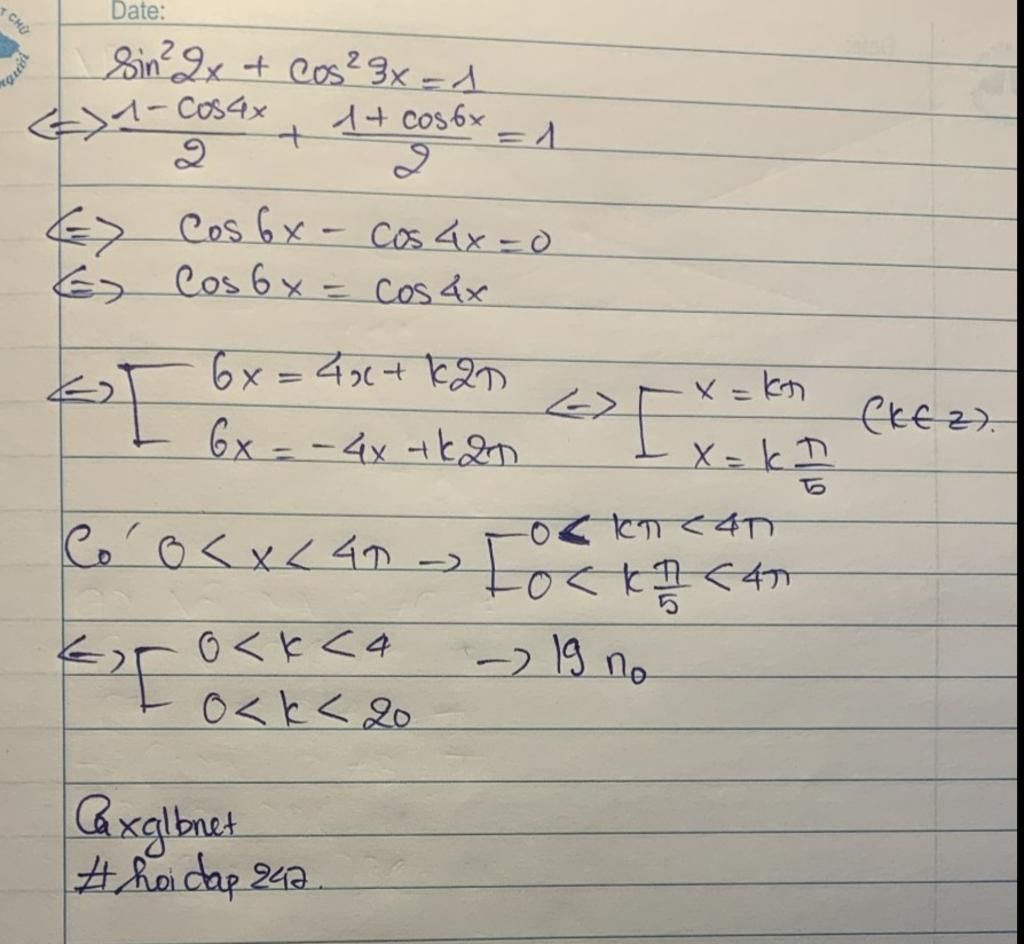 T CHỮ
Date:
người
sin²2x + cos²3x = 1
<=> (1 - cos4x)/2 + (1 + cos6x)/2 = 1
<=> cos6x - cos4x = 0
<=> cos6x = cos4x
<=> [ 6x = 4x + k2π <=> [ x = kπ (k∈z).
6x = -4x + k2π x = k π/5
Có 0 < x < 4π -> [ 0 < kπ < 4π
0 < k π/5 < 4π
<=> [ 0 < k < 4 -> 19 no
0 < k < 20
@axglbnet
#hoidap247.